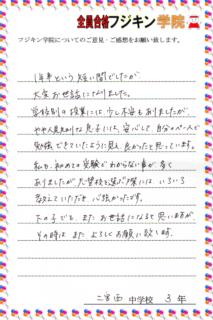 全員合格フジキン学院
フジキン学院についてのご意見・ご感想をお願い致します。
1年半という短い間でしたが
大変お世話になりました。
学校別の授業には、少し不安もありましたが、
やや人見知りな息子にも、安心して、自分のペースで
勉強できていたように思え、良かったと思っています。
私も、初めての受験でわからない事が多く
ありましたが、志望校を選ぶ際には、いろいろ
教えていただき、心強かったです。
下の子でも、またお世話になると思いますが、
その時は、またよろしくお願い致します。
二宮西 中学校 3 年